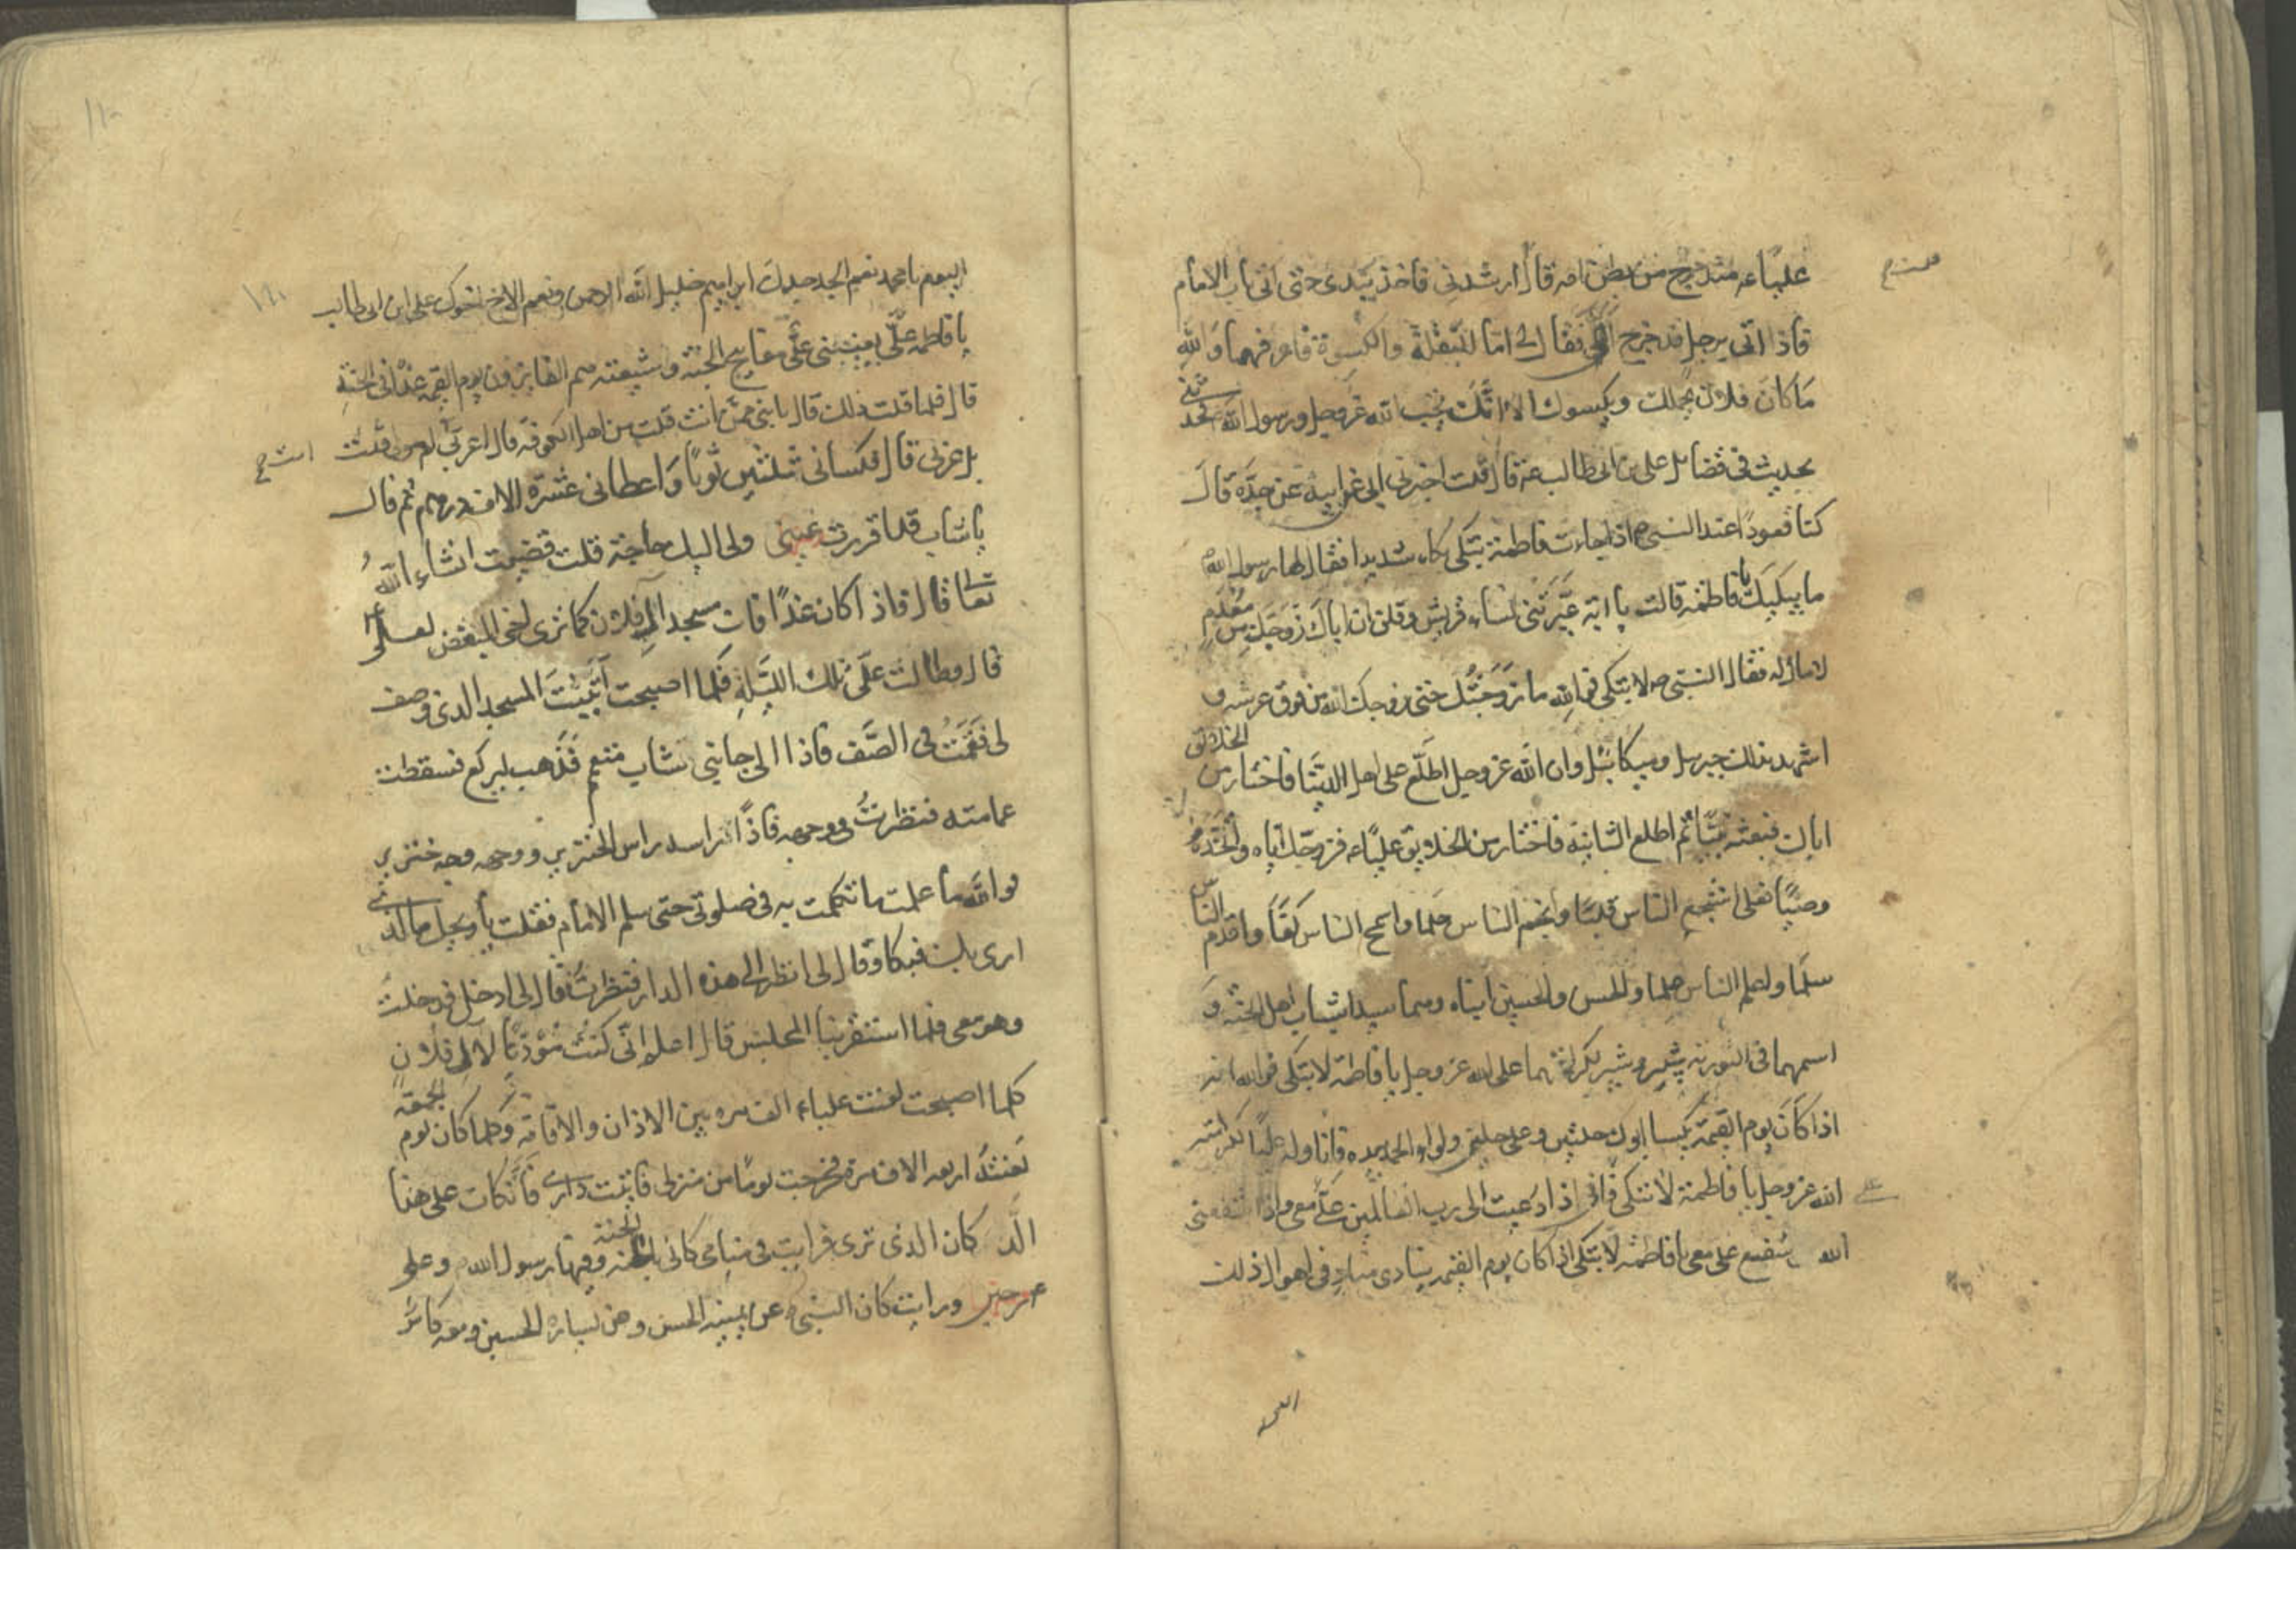 علياء منذ خرج من بطن امه قال ارشدني فاخذ بيدى حتى اتى باب الامام
فاذا انى برجل قد خرج الي فقال لى اما البغلة والكسوة فاعرفهما والله
ما كان فلان يحملك ويكسوك الا انك تحب الله عز وجل ورسول الله فحدثني
بحديث في فضايل على بن ابى طالب عه قال قلت اخبرنى ابى عن ابيه عن جده قال
كنا قعودا عند النبى اذا جاءت فاطمة تبكى بكاء شديدا فقال لها رسول الله
ما يبكيك يا فاطمة قالت يا ابة عيرتنى نساء قريش وقلن ان اباك زوجك من معدم
لا مال له فقال النبى لا تبكى فوالله ما زوجتك حتى زوجك الله من فوق عرشه و
اشهد بذلك جبرئيل وميكائيل وان الله عز وجل اطلع على اهل الدنيا فاختار من الخلائق
اباك فبعثه نبيا ثم اطلع الثانية فاختار من الخلايق علياء فزوجك اياه واتخذه
وصيا فعلى اشجع الناس قلبا واحلم الناس حلما واسمح الناس كفا واقدم الناس
سلما واعلم الناس علما والحسن والحسين ابناه وهما سيدا شباب اهل الجنة و
اسمهما فى التورية شبر وشبير لكرامتهما على الله عز وجل يا فاطمة لا تبكى فوالله انه
اذا كان يوم القيمة يكسا ابوك حلتين وعلى حلتين ولواء الحمد بيده فاناوله عليا لكرامته
على الله عز وجل يا فاطمة لا تبكى فانى اذا دعيت الى رب العالمين على معى واذا شفعنى
الله شفع على معى يا فاطمة لا تبكى اذا كان يوم القيمة ينادى مناد فى اهوال ذلك
اليوم يا محمد نعم الجد جدك ابراهيم خليل الله الرحمن ونعم الاخ اخوك على ابن ابى طالب
يا فاطمة على يعيننى على مفاتيح الجنة وشيعته هم الفايزون يوم القيمة غدا فى الجنة
قال فلما قلت ذلك قال يا بنى ممن انت قلت من اهل الكوفة قال اعربى ام مولى قلت
بل عربى قال فكسانى ثلثين ثوبا واعطانى عشرة الاف درهم ثم قال
يا شاب قد اقررت عينى ولى اليك حاجة قلت قضيت انشاء الله
تعا قال فاذا كان غدا فات مسجد ال فلان كما ترى اخى المبغض لعلى
قال وطالت على تلك الليلة فلما اصبحت اتيت المسجد الذى وصف
لى فقمت فى الصف فاذا الى جانبى شاب متعمم فذهب ليركع فسقطت
عمامته فنظرت فى وجهه فاذا راسه راس الخنزير ووجهه وجه خنزير
فوالله ما علمت ما تكلمت به فى صلوتى حتى سلم الامام فقلت يا ويحك ما الذى
ارى بك فبكا وقال لى انظر الى هذه الدار فنظرت فقال لى ادخل فدخلت
وهو معى فلما استقر بنا المجلس قال اعلم انى كنت مؤذنا لال فلان
كلما اصبحت لعنت علياء الف مرة بين الاذان والاقامة وكلما كان يوم الجمعة
لعنته اربعة الاف مرة فخرجت يوما من منزلى فاتيت دارى فاتكات على هذا
الد كان الذى ترى فرايت فى منامى كانى بالجنة وفيها رسول الله وعلى
فرحين ورايت كان النبى عن يمينه الحسن وعن يساره الحسين ومعه كاس